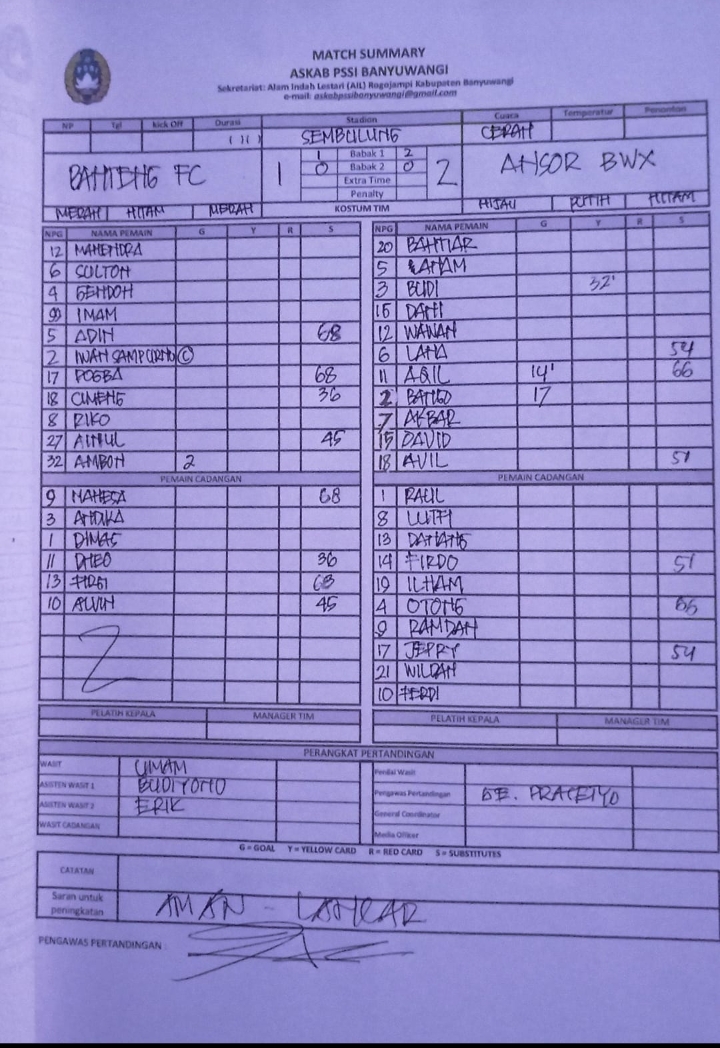 MATCH SUMMARY
ASKAB PSSI BANYUWANGI
Sekretariat: Alam Indah Lestari (AIL) Rogojampi Kabupaten Banyuwangi
e-mail: askabpssibanyuwangi@gmail.com
NP Tgl Kick Off Durasi Stadion Cuaca Temperatur Penonton
SEMBULUNG CERAH
BANTENG FC 1 2 ANSOR BWX
1 Babak 1 2
0 Babak 2 0
Extra Time
Penalty
MERAH HITAM MERAH KOSTUM TIM HIJAU PUTIH HITAM
NPG NAMA PEMAIN G Y R S NPG NAMA PEMAIN G Y R S
12 MAHENDRA 20 BAHTIAR
6 SULTON 5
4 GENDOH 3 BUDI 32'
99 IMAM 16 DANI
5 ADIN 68 12 WAWAN
2 IWAN SAMPURNO © 6 LANA 54
17 POGBA 68 11 AQIL 14' 66
18 36 2 17
8 RIKO 7 AKBAR
27 AINUL 45 15 DAVID
32 AMBON 2 18 AVIL 51
PEMAIN CADANGAN PEMAIN CADANGAN
9 MAHESA 68 1
3 ANDIKA 8 LUTFI
1 DIMAS 13 DANANG
11 DHEO 36 14 FIRDO 51
13 68 19 ILHAM
10 ALVIN 45 4 OTONG
9 RAMDAN
17 JEPRY 54
21 WILDAN
10 FERDI
PELATIH KEPALA MANAGER TIM PELATIH KEPALA MANAGER TIM
PERANGKAT PERTANDINGAN
WASIT UMAM Penilai Wasit
ASISTEN WASIT 1 BUDIYONO Pengawas Pertandingan PRASETYO
ASISTEN WASIT 2 ERIK General Coordinator
WASIT CADANGAN Media Officer
G = GOAL Y = YELLOW CARD R = RED CARD S = SUBSTITUTES
CATATAN
Saran untuk
peningkatan AMAN - LANCAR
PENGAWAS PERTANDINGAN